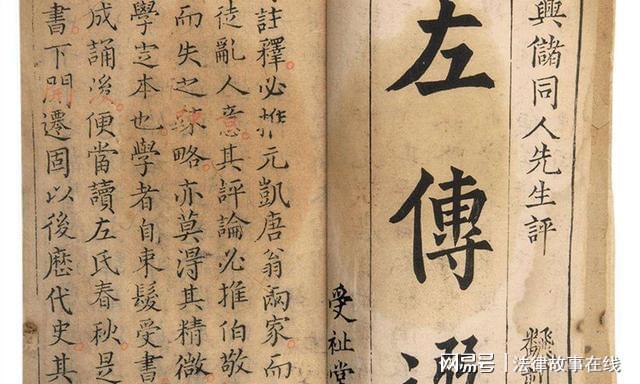 興儲同人先生評
左傳
受祉堂
註釋必推元凱唐翁兩家而
徒亂人意其評論必推伯敬
而失之踈略亦莫得其精微
學定本也學者自束髮受書
成誦後便當讀左氏春秋是
書下閱遷固以後歷代史其
网易号 | 法律故事在线